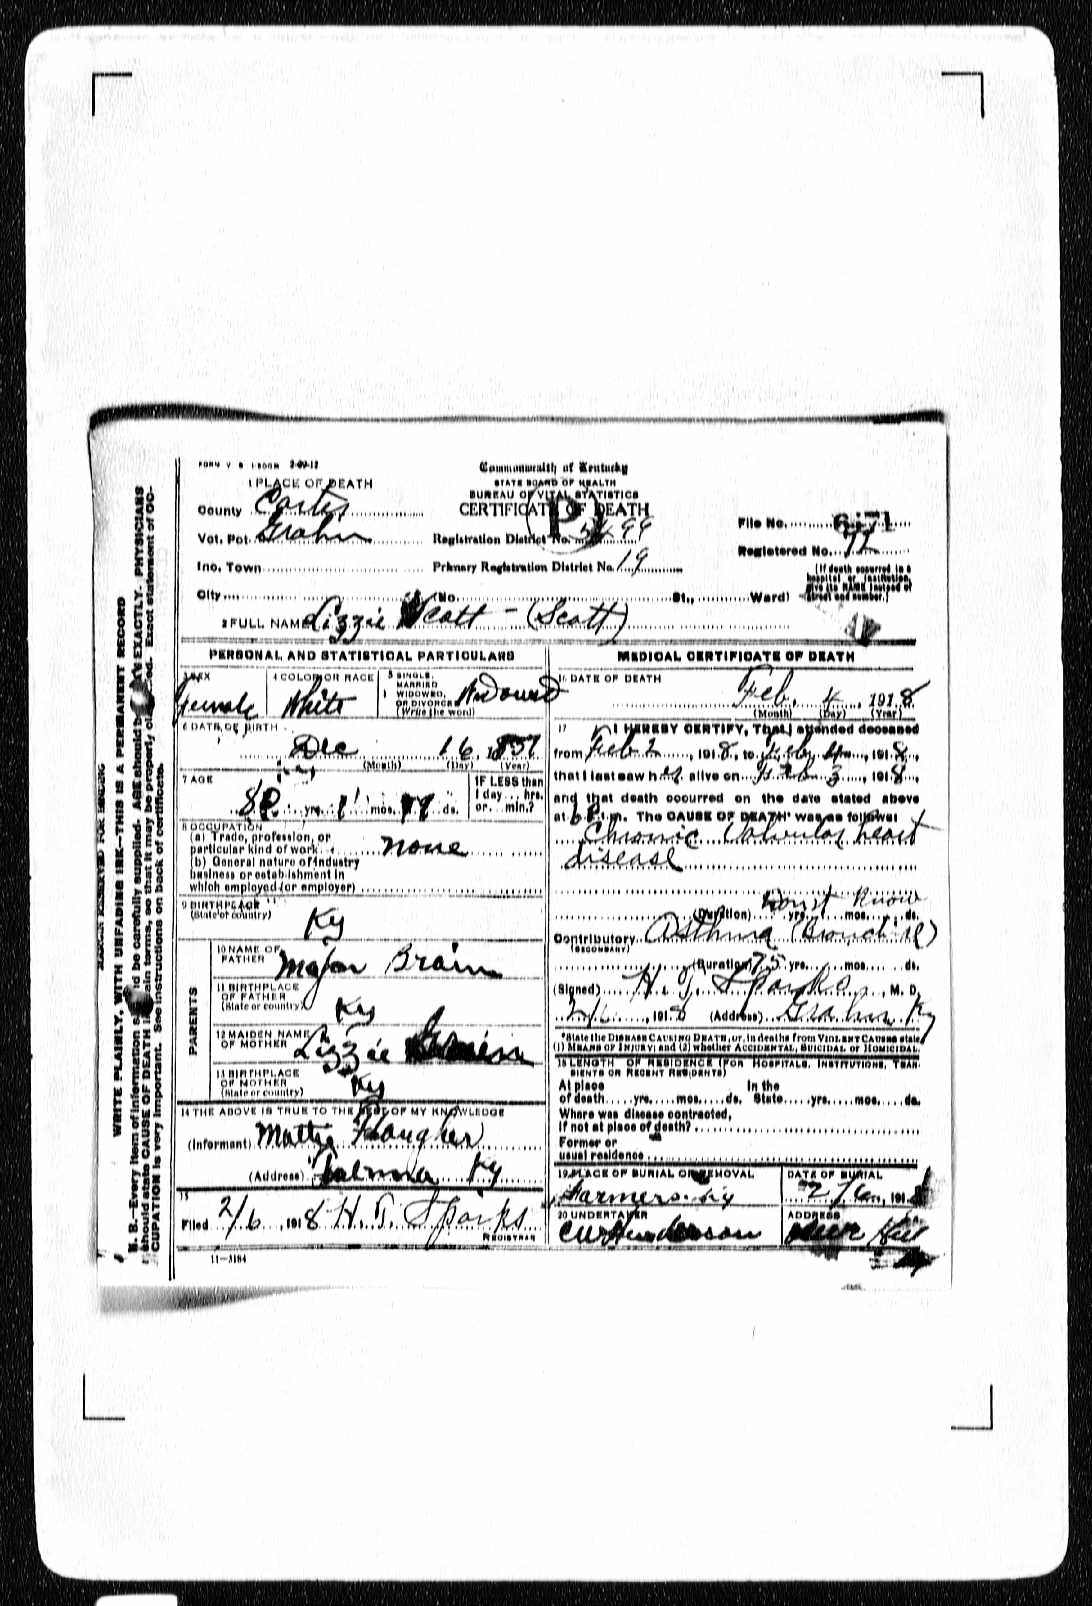 FORM V S 1-500M 2-09-12
Commonwealth of Kentucky
STATE BOARD OF HEALTH
BUREAU OF VITAL STATISTICS
CERTIFICATE OF DEATH
1 PLACE OF DEATH
County Carter
Vot. Pct. Grahn
Inc. Town
City (No. St., Ward)
Registration District No.
Primary Registration District No. 19
File No.
Registered No.
(If death occurred in a hospital or institution, give its NAME instead of street and number.)
2 FULL NAME Lizzie Scott - (Scott)
PERSONAL AND STATISTICAL PARTICULARS
3 SEX
Female
4 COLOR OR RACE
White
5 SINGLE, MARRIED WIDOWED, OR DIVORCED (Write the word)
Widowed
6 DATE OF BIRTH
Dec 16
(Month) (Day) (Year)
7 AGE
yrs. mos. ds.
IF LESS than 1 day... hrs. or... min.?
8 OCCUPATION
(a) Trade, profession, or particular kind of work none
(b) General nature of industry business or establishment in which employed (or employer)
9 BIRTHPLACE (State or country)
Ky
PARENTS
10 NAME OF FATHER Major Brain
11 BIRTHPLACE OF FATHER (State or country)
Ky
12 MAIDEN NAME OF MOTHER Lizzie
13 BIRTHPLACE OF MOTHER (State or country)
Ky
14 THE ABOVE IS TRUE TO THE BEST OF MY KNOWLEDGE
(Informant) Flaugher
(Address) Ky
15
Filed 2/6 1918 H. T. Sparks
REGISTRAR
11-3184
MEDICAL CERTIFICATE OF DEATH
16 DATE OF DEATH
Feb. 4, 1918
(Month) (Day) (Year)
17 I HEREBY CERTIFY, That I attended deceased
from Feb 2, 1918, to Feb 4, 1918,
that I last saw her alive on Feb 3, 1918,
and that death occurred on the date stated above
at m. The CAUSE OF DEATH* was as follows:
Chronic Valvular heart
disease
Dont Know
(Duration) yrs. mos. ds.
Contributory Asthma (Bronchial)
(SECONDARY)
(Duration) yrs. mos. ds.
(Signed) H. T. Sparks, M. D.
2/6, 1918 (Address) Grahn, Ky
*State the DISEASE CAUSING DEATH, or, in deaths from VIOLENT CAUSES state
(1) MEANS OF INJURY; and (2) whether ACCIDENTAL, SUICIDAL or HOMICIDAL.
18 LENGTH OF RESIDENCE (FOR HOSPITALS, INSTITUTIONS, TRANSIENTS OR RECENT RESIDENTS)
At place of death yrs. mos. ds. In the State yrs. mos. ds.
Where was disease contracted,
if not at place of death?
Former or usual residence
19 PLACE OF BURIAL OR REMOVAL
Farmers Ky
DATE OF BURIAL
2/6, 191
20 UNDERTAKER
Henderson
ADDRESS
MARGIN RESERVED FOR BINDING
WRITE PLAINLY, WITH UNFADING INK—THIS IS A PERMANENT RECORD
N. B.—Every item of information should be carefully supplied. AGE should be EXACTLY. PHYSICIANS
should state CAUSE OF DEATH in plain terms, so that it may be properly classified. Exact statement of OC-
CUPATION is very important. See instructions on back of certificate.